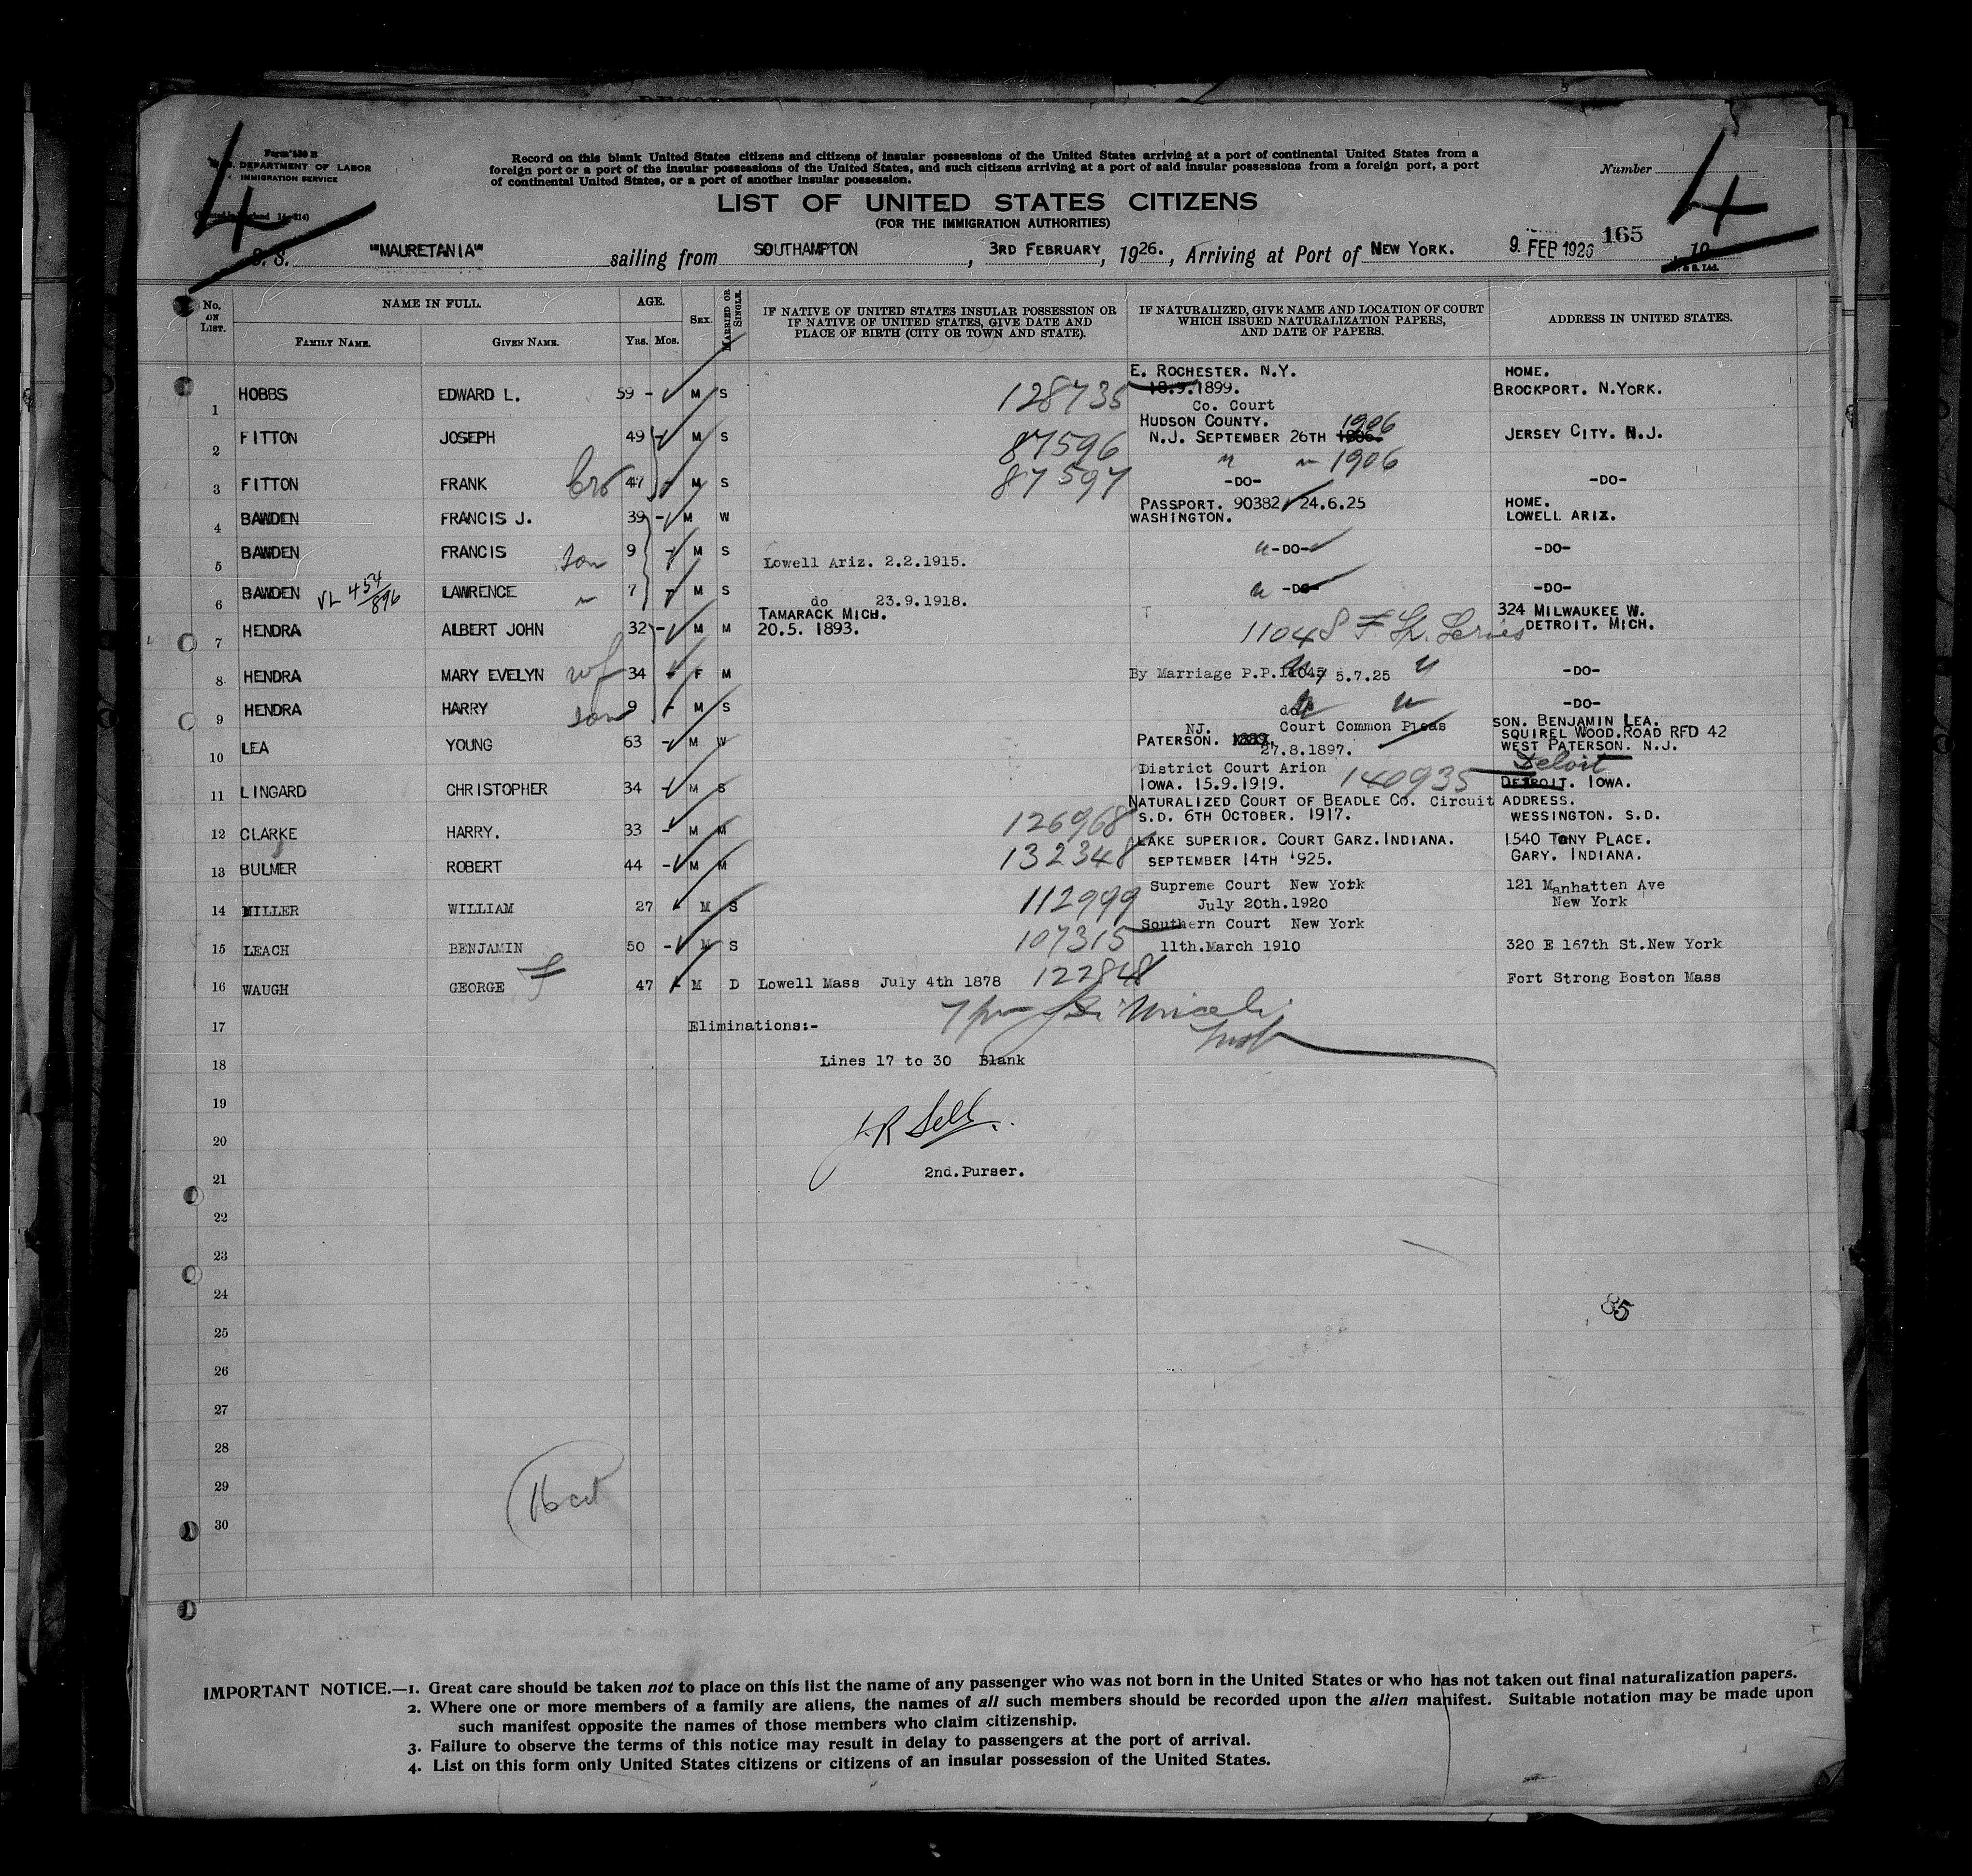 4
Form 590 B
U.S. DEPARTMENT OF LABOR
IMMIGRATION SERVICE
Record on this blank United States citizens and citizens of insular possessions of the United States arriving at a port of continental United States from a
foreign port or a port of the insular possessions of the United States, and such citizens arriving at a port of said insular possessions from a foreign port, a port
of continental United States, or a port of another insular possession.
Number
4
LIST OF UNITED STATES CITIZENS
(FOR THE IMMIGRATION AUTHORITIES)
S. S. "MAURETANIA" sailing from SOUTHAMPTON, 3RD FEBRUARY, 1926., Arriving at Port of NEW YORK. 9. FEB 1926 165 19
No. ON LIST. NAME IN FULL. AGE. SEX. MARRIED OR SINGLE. IF NATIVE OF UNITED STATES INSULAR POSSESSION OR IF NATIVE OF UNITED STATES, GIVE DATE AND PLACE OF BIRTH (CITY OR TOWN AND STATE). IF NATURALIZED, GIVE NAME AND LOCATION OF COURT WHICH ISSUED NATURALIZATION PAPERS, AND DATE OF PAPERS. ADDRESS IN UNITED STATES.
FAMILY NAME. GIVEN NAME. YRS. MOS.
E. ROCHESTER. N.Y. HOME.
1 HOBBS EDWARD L. 59 - M S 128735 18.9.1899. BROCKPORT. N.YORK.
Co. Court
HUDSON COUNTY. 1906
2 FITTON JOSEPH 49 - M S 87596 N.J. SEPTEMBER 26TH JERSEY CITY. N.J.
" " 1906
3 FITTON FRANK bro 47 - M S 87597 -DO- -DO-
PASSPORT. 90382 24.6.25 HOME.
4 BAWDEN FRANCIS J. 39 - M W WASHINGTON. LOWELL ARIZ.
5 BAWDEN FRANCIS son 9 - M S Lowell Ariz. 2.2.1915. " -DO- -DO-
6 BAWDEN VL 454/896 LAWRENCE " 7 - M S do 23.9.1918. " -DO- -DO-
TAMARACK MICH. 324 MILWAUKEE W.
7 HENDRA ALBERT JOHN 32 - M M 20.5. 1893. 11048 DETROIT. MICH.
8 HENDRA MARY EVELYN wf 34 - F M By Marriage P.P. 11045 5.7.25 " -DO-
9 HENDRA HARRY son 9 - M S do " -DO-
NJ. Court Common Pleas SON. BENJAMIN LEA.
10 LEA YOUNG 63 - M W PATERSON. 27.8.1897. SQUIREL WOOD.ROAD RFD 42
WEST PATERSON. N.J.
District Court Arion 140935 Deloit
11 LINGARD CHRISTOPHER 34 - M S IOWA. 15.9.1919. DETROIT. IOWA.
NATURALIZED COURT OF BEADLE CO. Circuit ADDRESS.
12 CLARKE HARRY. 33 - M M 126968 S.D. 6TH OCTOBER. 1917. WESSINGTON. S.D.
LAKE SUPERIOR. COURT GARZ. INDIANA. 1540 TONY PLACE.
13 BULMER ROBERT 44 - M M 132348 SEPTEMBER 14TH '925. GARY. INDIANA.
Supreme Court New York 121 Manhatten Ave
14 MILLER WILLIAM 27 M S 112999 July 20th.1920 New York
Southern Court New York
15 LEACH BENJAMIN 50 - M S 107315 11th.March 1910 320 E 167th St.New York
16 WAUGH GEORGE F 47 - M D Lowell Mass July 4th 1878 122848 Fort Strong Boston Mass
17 Eliminations:-
18 Lines 17 to 30 Blank
19
20
21 2nd.Purser.
22
23
24
85
25
26
27
28
29
30
IMPORTANT NOTICE.—1. Great care should be taken not to place on this list the name of any passenger who was not born in the United States or who has not taken out final naturalization papers.
2. Where one or more members of a family are aliens, the names of all such members should be recorded upon the alien manifest. Suitable notation may be made upon
such manifest opposite the names of those members who claim citizenship.
3. Failure to observe the terms of this notice may result in delay to passengers at the port of arrival.
4. List on this form only United States citizens or citizens of an insular possession of the United States.